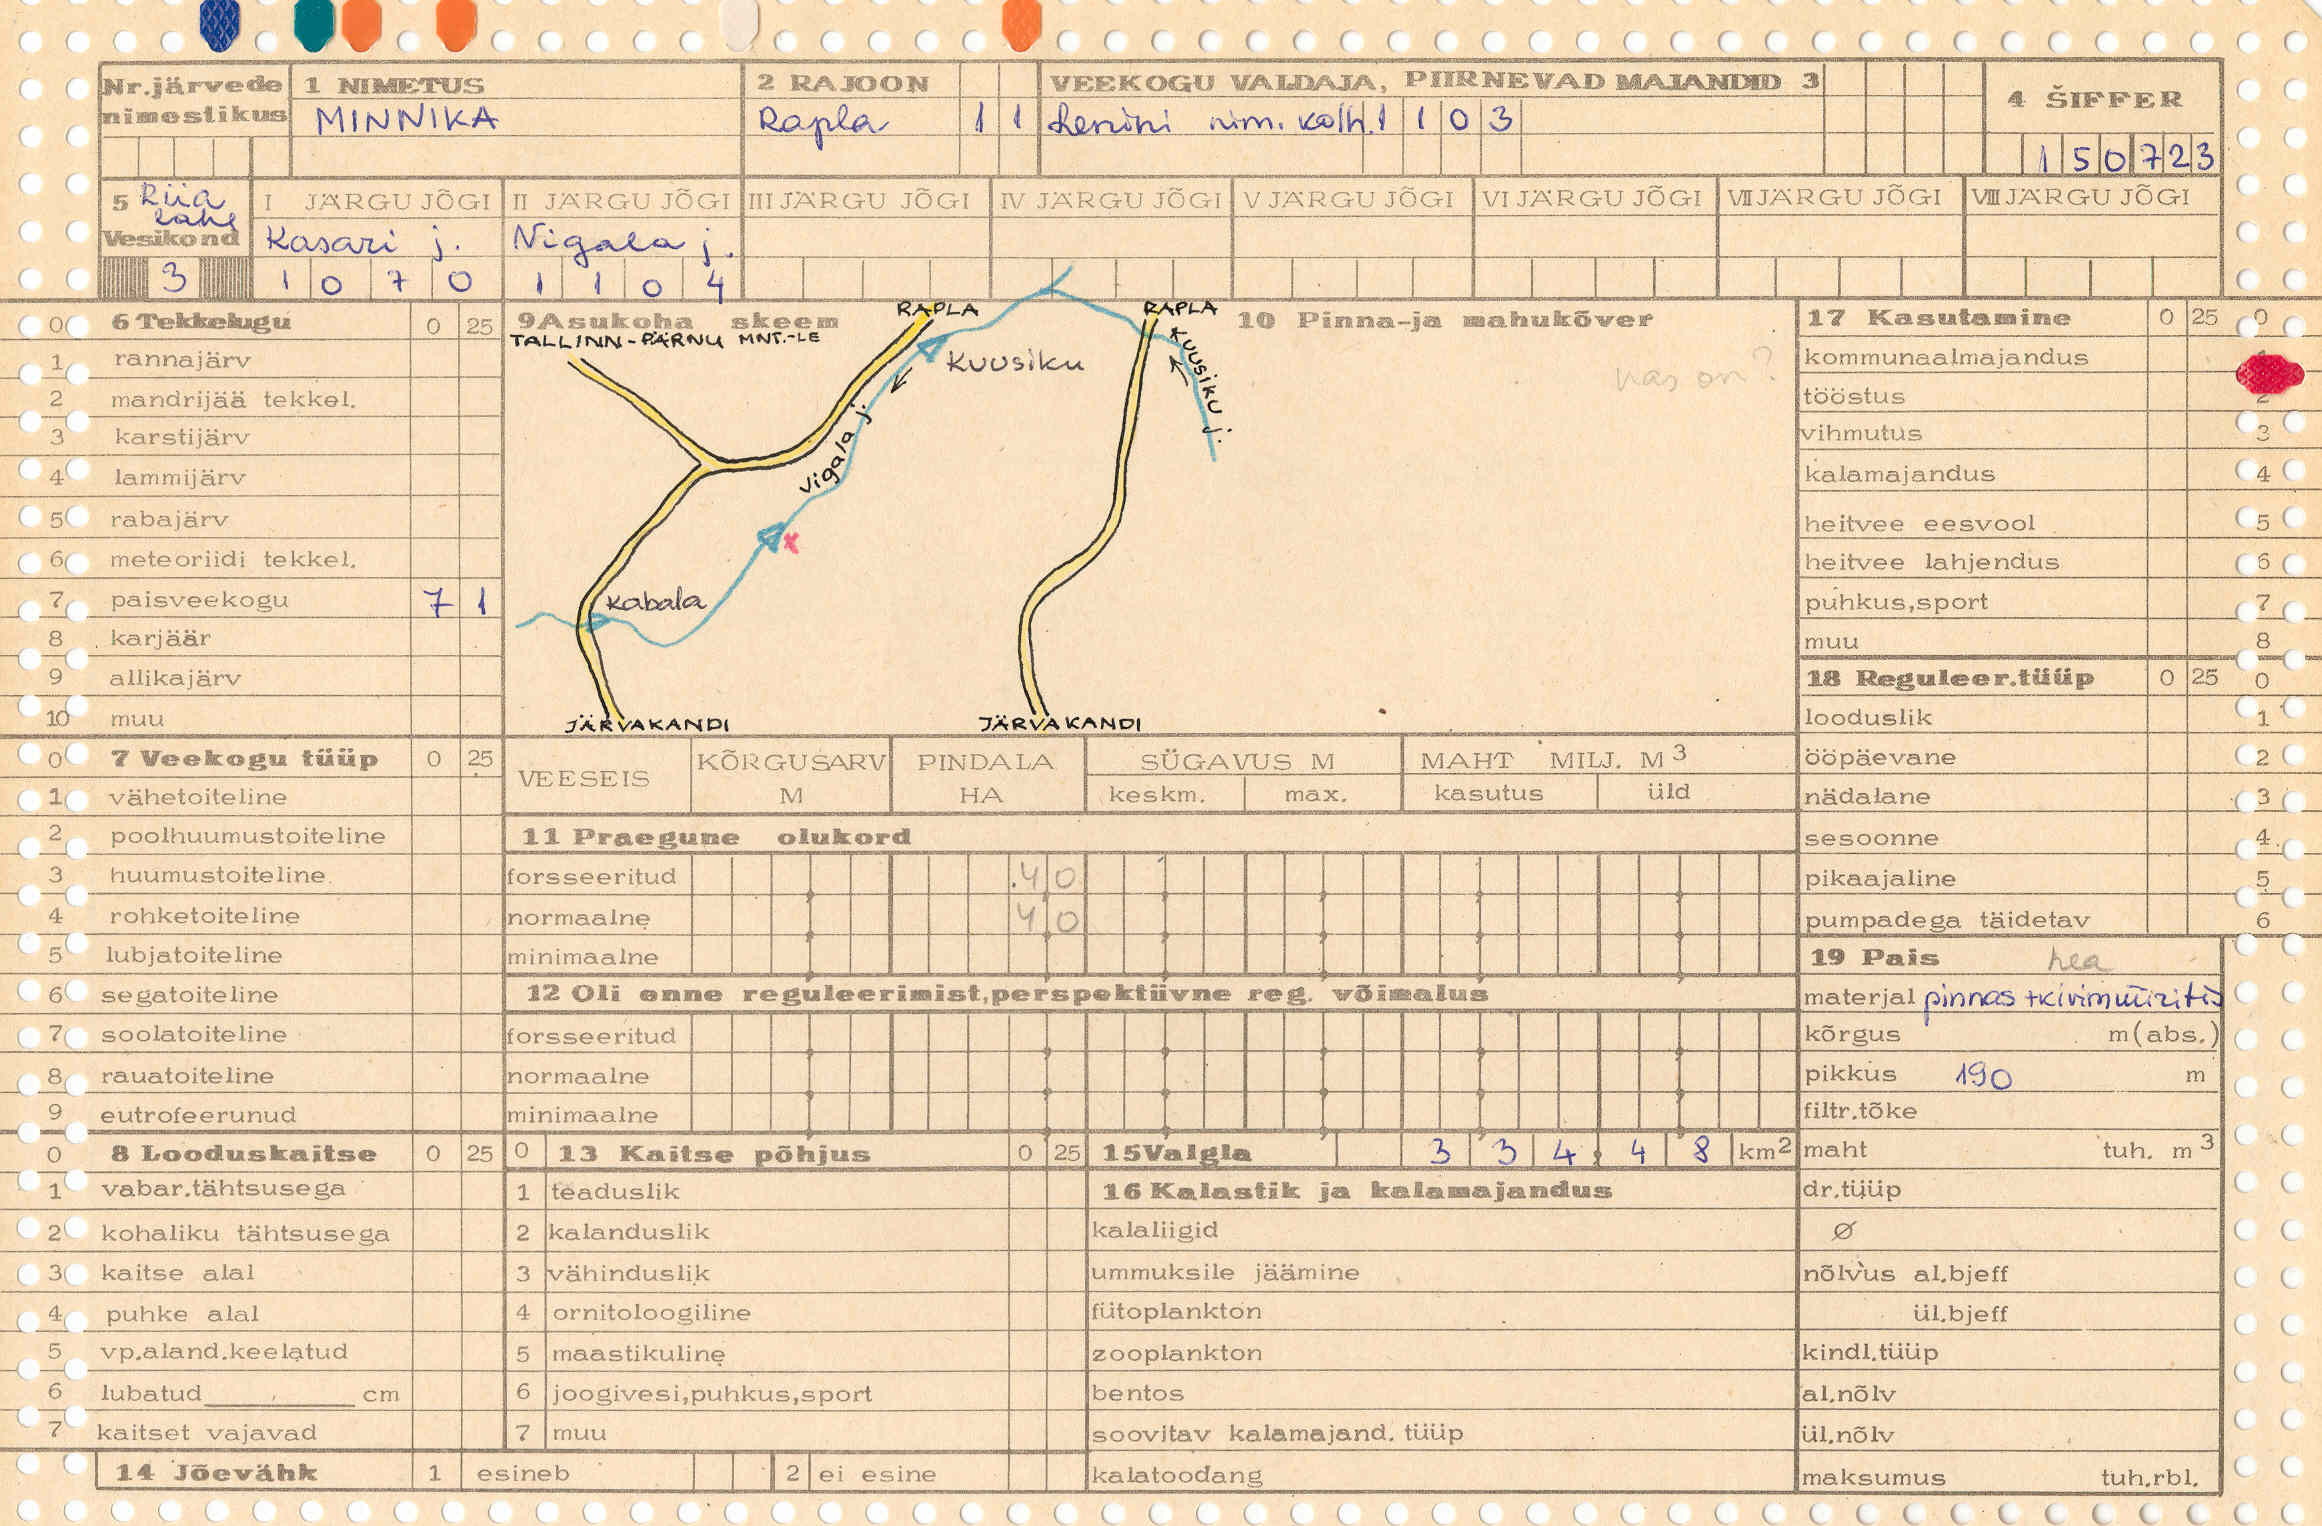 Nr.järvede nimestikus
1 NIMETUS
MINNIKA
2 RAJOON
Rapla 1 1
VEEKOGU VALDAJA, PIIRNEVAD MAJANDID 3
Lenini nim. kolh. 1 1 0 3
4 ŠIFFER
1 5 0 7 2 3
5 Riia lahe
Vesikond
3
I JÄRGU JÕGI
Kasari j.
1 0 7 0
II JÄRGU JÕGI
Vigala j.
1 1 0 4
III JÄRGU JÕGI
IV JÄRGU JÕGI
V JÄRGU JÕGI
VI JÄRGU JÕGI
VII JÄRGU JÕGI
VIII JÄRGU JÕGI
0 6 Tekkelugu 0 25
1 rannajärv
2 mandrijää tekkel.
3 karstijärv
4 lammijärv
5 rabajärv
6 meteoriidi tekkel.
7 paisveekogu 7 1
8 karjäär
9 allikajärv
10 muu
9 Asukoha skeem
TALLINN-PÄRNU MNT.-LE
RAPLA
Kuusiku
Vigala j.
Kabala
JÄRVAKANDI
RAPLA
Kuusiku j.
JÄRVAKANDI
10 Pinna-ja mahukõver
kas on?
17 Kasutamine 0 25 0
kommunaalmajandus
tööstus 2
vihmutus 3
kalamajandus 4
heitvee eesvool 5
heitvee lahjendus 6
puhkus,sport 7
muu 8
18 Reguleer.tüüp 0 25 0
looduslik 1
ööpäevane 2
nädalane 3
sesoonne 4
pikaajaline 5
pumpadega täidetav 6
0 7 Veekogu tüüp 0 25
1 vähetoiteline
2 poolhuumustoiteline
3 huumustoiteline
4 rohketoiteline
5 lubjatoiteline
6 segatoiteline
7 soolatoiteline
8 rauatoiteline
9 eutrofeerunud
VEESEIS
KÕRGUSARV M
PINDALA HA
SÜGAVUS M
keskm. max.
MAHT MILJ. M3
kasutus üld
11 Praegune olukord
forsseeritud 4 0
normaalne 4 0
minimaalne
12 Oli enne reguleerimist,perspektiivne reg. võimalus
forsseeritud
normaalne
minimaalne
19 Pais hea
materjal pinnas +kivimüüritis
kõrgus m(abs.)
pikkus 190 m
filtr.tõke
maht tuh. m3
dr.tüüp
Ø
nõlvus al.bjeff
ül.bjeff
kindl.tüüp
al.nõlv
ül.nõlv
maksumus tuh.rbl.
0 8 Looduskaitse 0 25
1 vabar.tähtsusega
2 kohaliku tähtsusega
3 kaitse alal
4 puhke alal
5 vp.aland.keelatud
6 lubatud cm
7 kaitset vajavad
0 13 Kaitse põhjus 0 25
1 teaduslik
2 kalanduslik
3 vähinduslik
4 ornitoloogiline
5 maastikuline
6 joogivesi,puhkus,sport
7 muu
15 Valgla 3 3 4, 4 8 km2
16 Kalastik ja kalamajandus
kalaliigid
ummuksile jäämine
fütoplankton
zooplankton
bentos
soovitav kalamajand. tüüp
kalatoodang
14 Jõevähk 1 esineb 2 ei esine